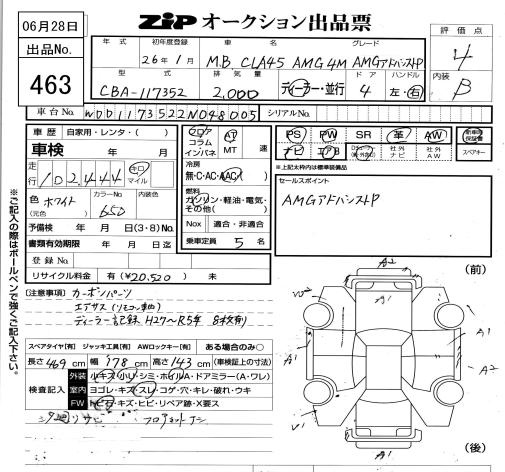 06月28日
ZIP オークション出品票
出品No.
463
年式 初年度登録 車名 グレード
26年1月 M.B. CLA45 AMG 4M AMGアドバンストP
型式 排気量 ドア ハンドル
CBA-117352 2,000 ディーラー・並行 4 左・右
評価点
4
内装
B
車台No. WDD1173522N048005 シリアルNo.
車歴 自家用・レンタ・( )
車検 年 月
走行 102,444 キロ マイル
色 ホワイト (元色) カラーNo. 650 内装色
予備検 年 月 日(3・8)No.
書類有効期限 年 月 日迄
登録No.
リサイクル料金 有(¥20,520) 未
フロア コラム インパネ AT MT 速
冷房
無・C・AC・AAC
燃料
ガソリン・軽油・電気・その他( )
Nox 適合・非適合
乗車定員 5 名
PS PW SR 革 AW 新車時保証書
ナビ エアB 社外ナビ 社外AW スペアキー
※上記太枠内は標準装備品
セールスポイント
AMGアドバンストP
※ご記入の際はボールペンで強くご記入下さい。
[注意事項] カーボンパーツ
ディーラー記録 H27~R5年 8枚剤
スペアタイヤ[有] ジャッキ工具[有] AWロックキー[有] ある場合のみ○
長さ469cm 幅178cm 高さ143cm (車検証上の寸法)
検査記入
外装 小キズ・小U・シミ・ホイルA・ドアミラー(A・ワレ)
室内 ヨゴレ・キズ・スレ・コゲ・穴・キレ・破れ・ウキ
FW トビ石・キズ・ヒビ・リペア跡・X要ス
下廻りサビ
(前)
A2
A1
A1
A1
A2
V1
A1
(後)